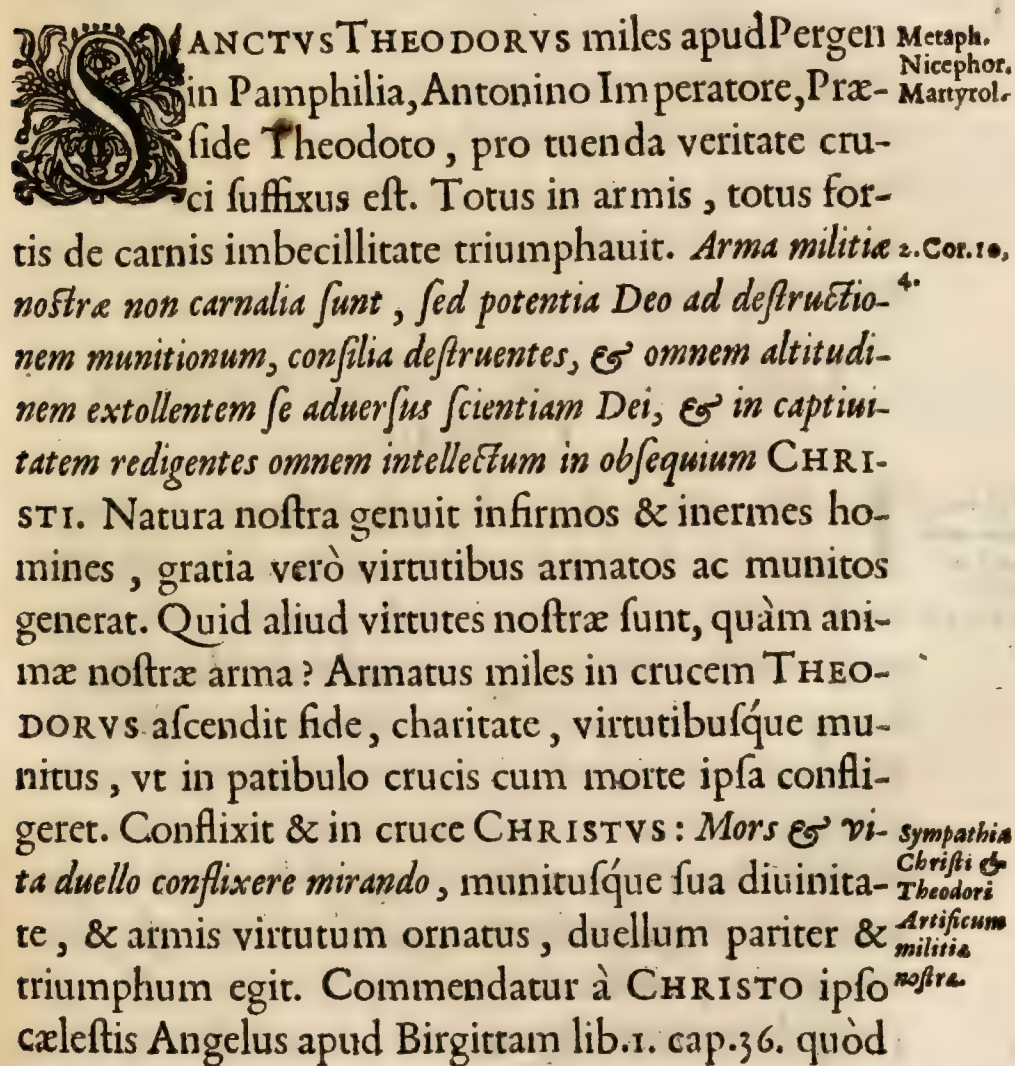 SANCTVS THEODORVS miles apud Pergen
in Pamphilia, Antonino Imperatore, Præ-
ſide Theodoto, pro tuenda veritate cru-
ci ſuffixus eſt. Totus in armis, totus for-
tis de carnis imbecillitate triumphauit. Arma militiæ
noſtræ non carnalia ſunt, ſed potentia Deo ad deſtructio-
nem munitionum, conſilia deſtruentes, & omnem altitudi-
nem extollentem ſe aduerſus ſcientiam Dei, & in captiui-
tatem redigentes omnem intellectum in obſequium CHRI-
STI. Natura noſtra genuit infirmos & inermes ho-
mines, gratia verò virtutibus armatos ac munitos
generat. Quid aliud virtutes noſtræ ſunt, quàm ani-
mæ noſtræ arma? Armatus miles in crucem THEO-
DORVS aſcendit fide, charitate, virtutibuſq́ue mu-
nitus, vt in patibulo crucis cum morte ipſa confli-
geret. Conflixit & in cruce CHRISTVS: Mors & vi-
ta duello conflixere mirando, munituſq́ue ſua diuinita-
te, & armis virtutum ornatus, duellum pariter &
triumphum egit. Commendatur à CHRISTO ipſo
cæleſtis Angelus apud Birgittam lib.1. cap.36. quòd
Metaph.
Nicephor.
Martyrol.
2.Cor.10,
4.
Sympathia
Chriſti &
Theodori
Artificum
militiæ
noſtræ.